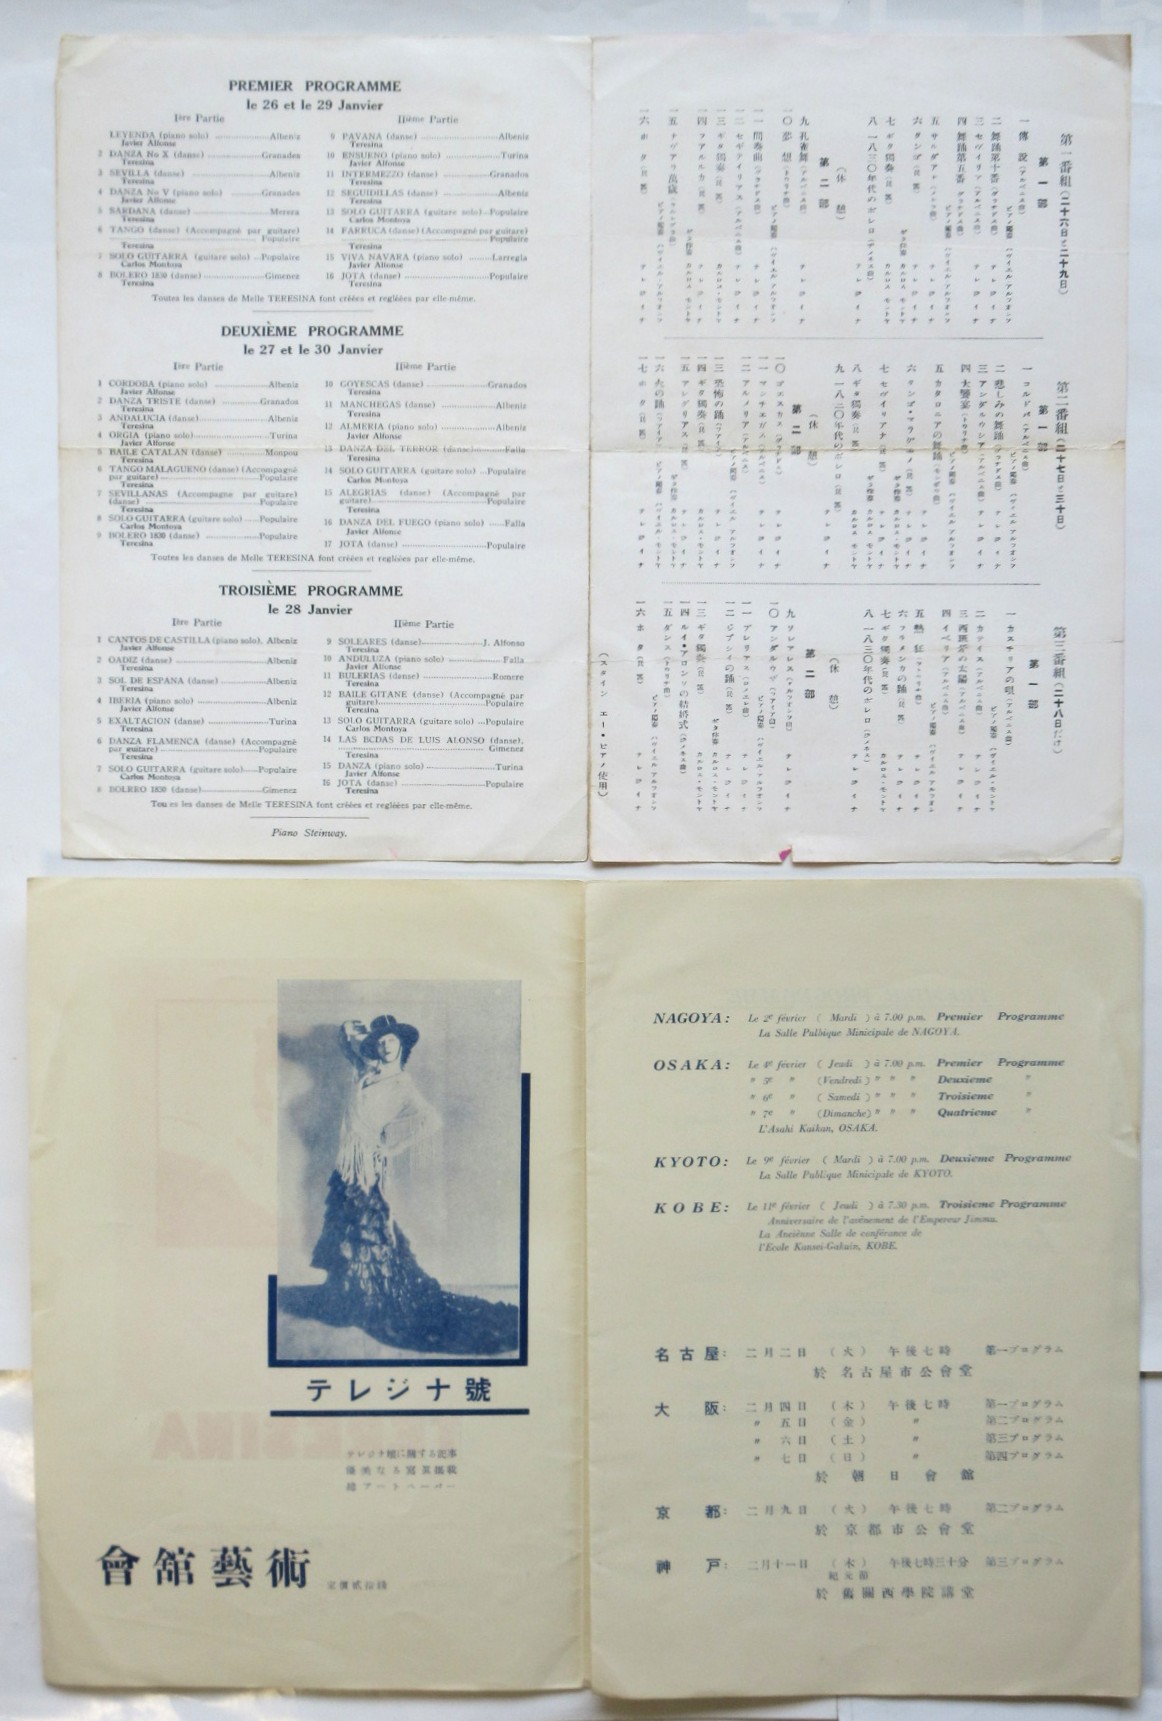 PREMIER PROGRAMME
le 26 et le 29 Janvier
Ière Partie
LEYENDA (piano solo) Albeniz
Javier Alfonse
2 DANZA No X (danse) Granados
Teresina
3 SEVILLA (danse) Albeniz
Teresina
4 DANZA No V (piano solo) Granados
Javier Alfonse
5 SARDANA (danse) Morera
Teresina
6 TANGO (danse) (Accompagné par guitare)
Populaire
Teresina
7 SOLO GUITARRA (guitare solo) Populaire
Carlos Montoya
8 BOLERO 1830 (danse) Gimenez
Teresina
IIième Partie
9 PAVANA (danse) Albeniz
Teresina
10 ENSUENO (piano solo) Turina
Javier Alfonse
11 INTERMEZZO (danse) Granados
Teresina
12 SEGUIDILLAS (danse) Albeniz
Teresina
13 SOLO GUITARRA (guitare solo) Populaire
Carlos Montoya
14 FARRUCA (danse) (Accompagné par guitare)
Populaire
Teresina
15 VIVA NAVARA (piano solo) Larregla
Javier Alfonse
16 JOTA (danse) Populaire
Teresina
Toutes les danses de Melle TERESINA font créées et regléées par elle-même.
DEUXIÈME PROGRAMME
le 27 et le 30 Janvier
Ière Partie
1 CORDOBA (piano solo) Albeniz
Javier Alfonse
2 DANZA TRISTE (danse) Granados
Teresina
3 ANDALUCIA (danse) Albeniz
Teresina
4 ORGIA (piano solo) Turina
Javier Alfonse
5 BAILE CATALAN (danse) Monpou
Teresina
6 TANGO MALAGUENO (danse) (Accompagné
par guitare) Populaire
Teresina
7 SEVILLANAS (Accompagne par guitare)
(danse) Populaire
Teresina
8 SOLO GUITARRA (guitare solo) Populaire
Carlos Montoya
9 BOLERO 1830 (danse) Populaire
Teresina
IIième Partie
10 GOYESCAS (danse) Granados
Teresina
11 MANCHEGAS (danse) Albeniz
Teresina
12 ALMERIA (piano solo) Albeniz
Javier Alfonse
13 DANZA DEL TERROR (danse) Falla
Teresina
14 SOLO GUITARRA (guitare solo) Populaire
Carlos Montoya
15 ALEGRIAS (danse) (Accompagné par
guitare) Populaire
Teresina
16 DANZA DEL FUEGO (piano solo) Falla
Javier Alfonse
17 JOTA (danse) Populaire
Toutes les danses de Melle TERESINA font créées et regléées par elle-même.
TROISIÈME PROGRAMME
le 28 Janvier
Ière Partie
1 CANTOS DE CASTILLA (piano solo). Albeniz
Javier Alfonse
2 OADIZ (danse) Albeniz
Teresina
3 SOL DE ESPANA (danse) Albeniz
Teresina
4 IBERIA (piano solo) Albeniz
Javier Alfonse
5 EXALTACION (danse) Turina
Teresina
6 DANZA FLAMENCA (danse) (Accompagné
par guitare) Populaire
Teresina
7 SOLO GUITARRA (guitare solo) Populaire
Carlos Montoya
8 BOLRRO 1830 (danse) Gimenez
Teresina
IIième Partie
9 SOLEARES (danse) J. Alfonso
Teresina
10 ANDULUZA (piano solo) Falla
Javier Alfonse
11 BULERIAS (danse) Romere
Teresina
12 BAILE GITANE (danse) (Accompagné par
guitare) Populaire
Teresina
13 SOLO GUITARRA (guitare solo) Populaire
Carlos Montoya
14 LAS BCDAS DE LUIS ALONSO (danse).
Gimenez
Teresina
15 DANZA (piano solo) Turina
Javier Alfonse
16 JOTA (danse) Populaire
Teresina
Toutes les danses de Melle TERESINA font créées et regléées par elle-même.
Piano Steinway.
第一番組(二十六日と二十九日)
第一部
一 傳說(アルベニス曲)
二 舞踊第十番(グラナドス曲) テレジイナ
三 セヴイリア(アルベニス曲) テレジイナ
四 舞踊第五番(グラナドス曲)
五 サルダアナ テレジイナ
六 タンゴ(民謠) テレジイナ
七 ギタ獨奏(民謠)
八 一八三〇年代のボレロ テレジイナ
(休憩)
第二部
九 孔雀舞(アルベニス曲) テレジイナ
一〇 夢想
一一 間奏曲(グラナドス曲) テレジイナ
一二 セギデイリアス(アルベニス曲) テレジイナ
一三 ギタ獨奏(民謠)
一四 フアルルカ(民謠) テレジイナ
一五 ナヴアラ萬歲
一六 ホタ(民謠) テレジイナ
第二番組(二十七日と三十日)
第一部
一 コルドバ(アルベニス曲)
二 悲しみの舞踊(グラナドス曲) テレジイナ
三 アンダルウシア(アルベニス曲) テレジイナ
四 大饗宴
五 カタロニアの舞踊 テレジイナ
六 タンゴ・マラゲニア(民謠) テレジイナ
七 セヴイリアナ(民謠) テレジイナ
八 ギタ獨奏(民謠)
九 一八三〇年代のボレロ(民謠) テレジイナ
(休憩)
第二部
一〇 ゴエスカス テレジイナ
一一 マンチエガス テレジイナ
一二 アルメリア
一三 恐怖の踊 テレジイナ
一四 ギタ獨奏(民謠)
一五 アレグリアス(民謠) テレジイナ
一六 火の踊
一七 ホタ(民謠) テレジイナ
第三番組(二十八日だけ)
第一部
一 カスチリアの唄(アルベニス曲)
二 カデイス(アルベニス曲) テレジイナ
三 西班牙の太陽(アルベニス曲) テレジイナ
四 イベリア(アルベニス曲)
五 熱狂 テレジイナ
六 フラメンカの踊(民謠) テレジイナ
七 ギタ獨奏(民謠)
八 一八三〇年代のボレロ テレジイナ
(休憩)
第二部
九 ソレアレス テレジイナ
一〇 アンダルウザ
一一 ブレリアス テレジイナ
一二 ジプシイの踊(民謠) テレジイナ
一三 ギタ獨奏(民謠)
一四 ルイ・アロンソの結婚式 テレジイナ
一五 ダンス
一六 ホタ(民謠) テレジイナ
(スタイン エー・ピアノ使用)
テレジナ號
テレジナ孃に關する記事
優美なる寫眞滿載
總アートペーパー
會舘藝術
定價貳拾錢
NAGOYA: Le 2e février ( Mardi ) à 7.00 p.m. Premier Programme
La Salle Pulbique Minicipale de NAGOYA.
OSAKA: Le 4e février ( Jeudi ) à 7.00 p.m. Premier Programme
〃 5e 〃 (Vendredi) 〃 〃 〃 Deuxieme 〃
〃 6e 〃 ( Samedi ) 〃 〃 〃 Troisieme 〃
〃 7e 〃 (Dimanche) 〃 〃 〃 Quatrieme 〃
L'Asahi Kaikan, OSAKA.
KYOTO: Le 9e février ( Mardi ) à 7.00 p.m. Deuxieme Programme
La Salle Publique Minicipale de KYOTO.
KOBE: Le 11e février ( Jeudi ) à 7.30 p.m. Troisieme Programme
Anniversaire de l'avénement de l'Empereur Jimmu.
La Anciènne Salle de conférance de
l'Ecole Kansei-Gakuin, KOBE.
名古屋: 二月二日 (火) 午後七時 第一プログラム
於 名古屋市公會堂
大阪: 二月四日 (木) 午後七時 第一プログラム
〃 五日 (金) 〃 第二プログラム
〃 六日 (土) 〃 第三プログラム
〃 七日 (日) 〃 第四プログラム
於 朝日會舘
京都: 二月九日 (火) 午後七時 第二プログラム
於 京都市公會堂
神戸: 二月十一日 (木) 午後七時三十分 第三プログラム
紀元節
於 舊關西學院講堂